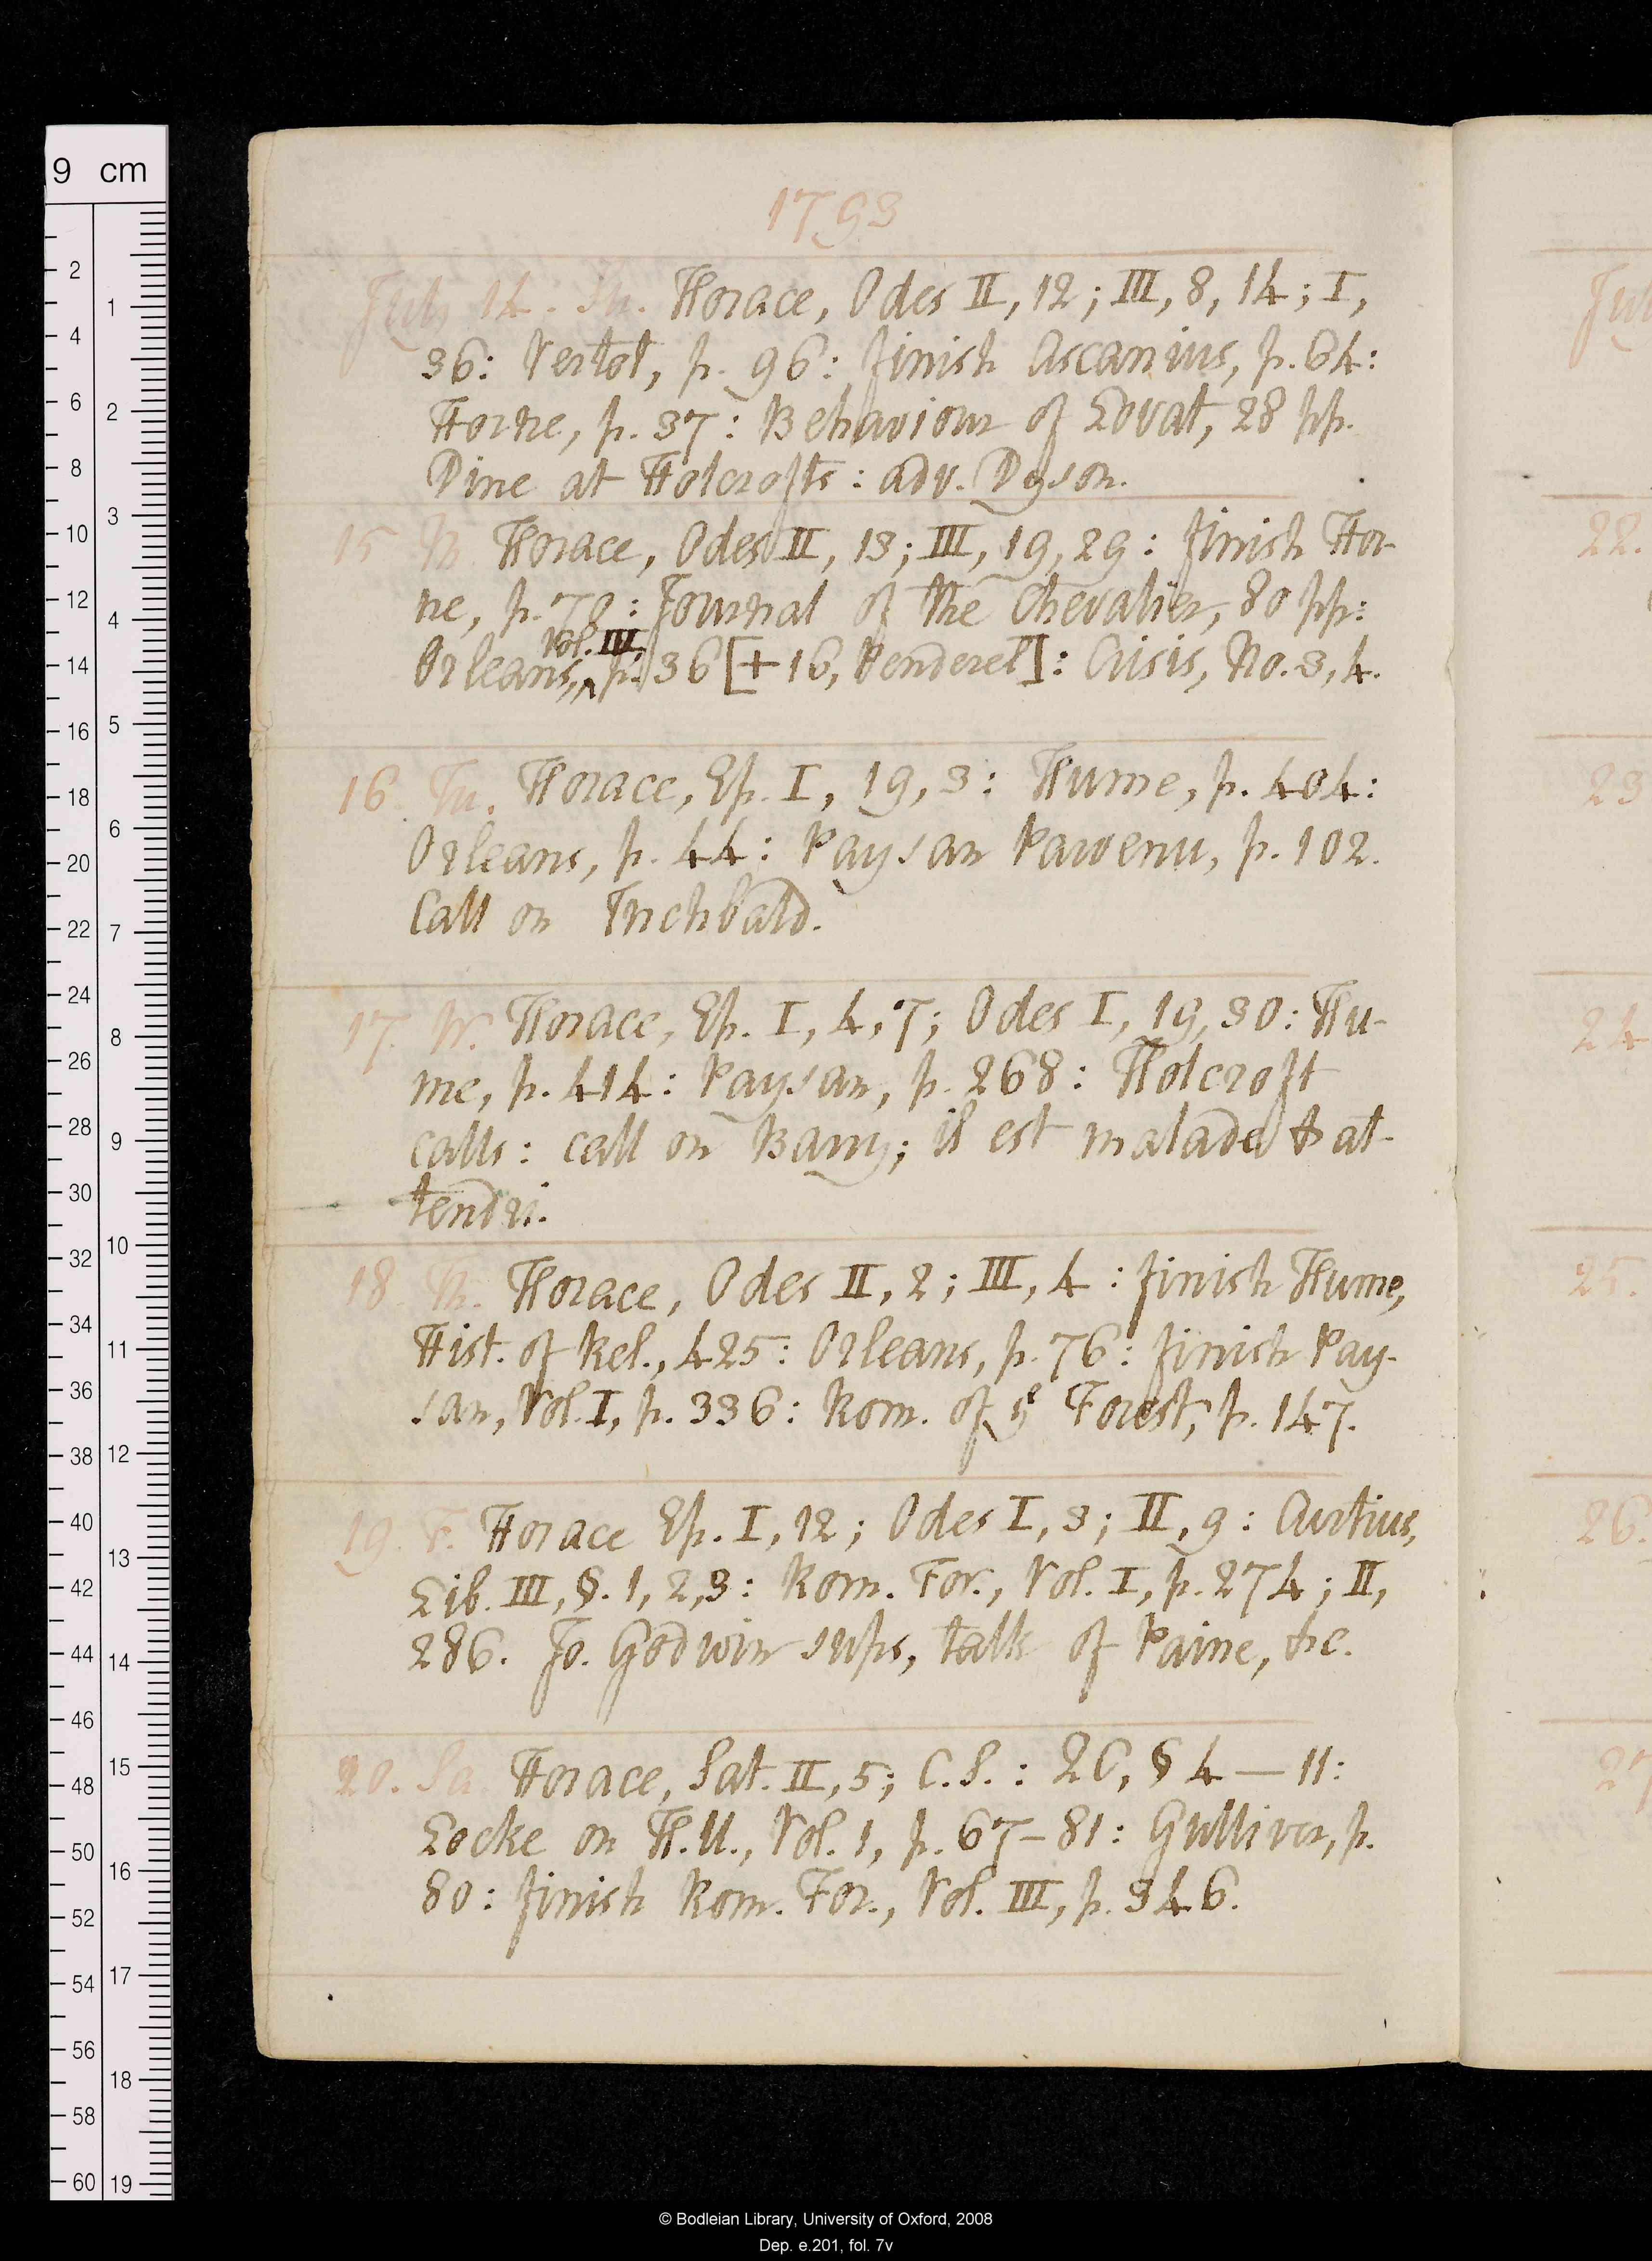 1793
July 14. Su. Horace, Odes II, 12; III, 8, 14; I,
36: Vertot, p. 96: finish Ascanius, p. 64:
Horne, p. 37: Behaviour of Lovat, 28 pp.
Dine at Holcrofts: adv. Dyson.
15 M. Horace, Odes II, 13; III, 19, 29: finish Hor-
ne, p. 70: Journal of the Chevalier, 80 pp:
Vol. IV,
Orleans, ^ p. 36 [+16, Penderel]: Crisis, No. 3, 4.
16. Tu. Horace, Ep. I, 19, 3: Hume, p. 404:
Orleans, p. 44: Paysan Parvenu, p. 102.
Call on Inchbald.
17. W. Horace, Ep. I, 4, 7; Odes I, 19, 30: Hu-
me, p. 414: Paysan, p. 268: Holcroft
calls: call on Barry; il est malade & at-
tendri.
18. Th. Horace, Odes II, 2; III, 4: finish Hume,
Hist. of Rel., 425: Orleans, p. 76: finish Pay-
san, Vol. I, p. 336: Rom. of ye Forest, p. 147.
19. F. Horace Ep. I, 12; Odes I, 3; II, 9: Curtius,
Lib. III, §. 1, 2, 3: Rom. For., Vol. I, p. 274; II,
286. Jo. Godwin sups, talk of Paine, &c.
20. Sa. Horace, Sat. II, 5; C.S.: 2C, § 4—11:
Locke on H.U., Vol. 1, p. 67–81: Gulliver, p.
80: finish Rom. For., Vol. III, p. 346.
July
22.
23
24
25.
26.
27
9 cm
2
4
6
8
10
12
14
16
18
20
22
24
26
28
30
32
34
36
38
40
42
44
46
48
50
52
54
56
58
60
1
2
3
4
5
6
7
8
9
10
11
12
13
14
15
16
17
18
19
© Bodleian Library, University of Oxford, 2008
Dep. e.201, fol. 7v